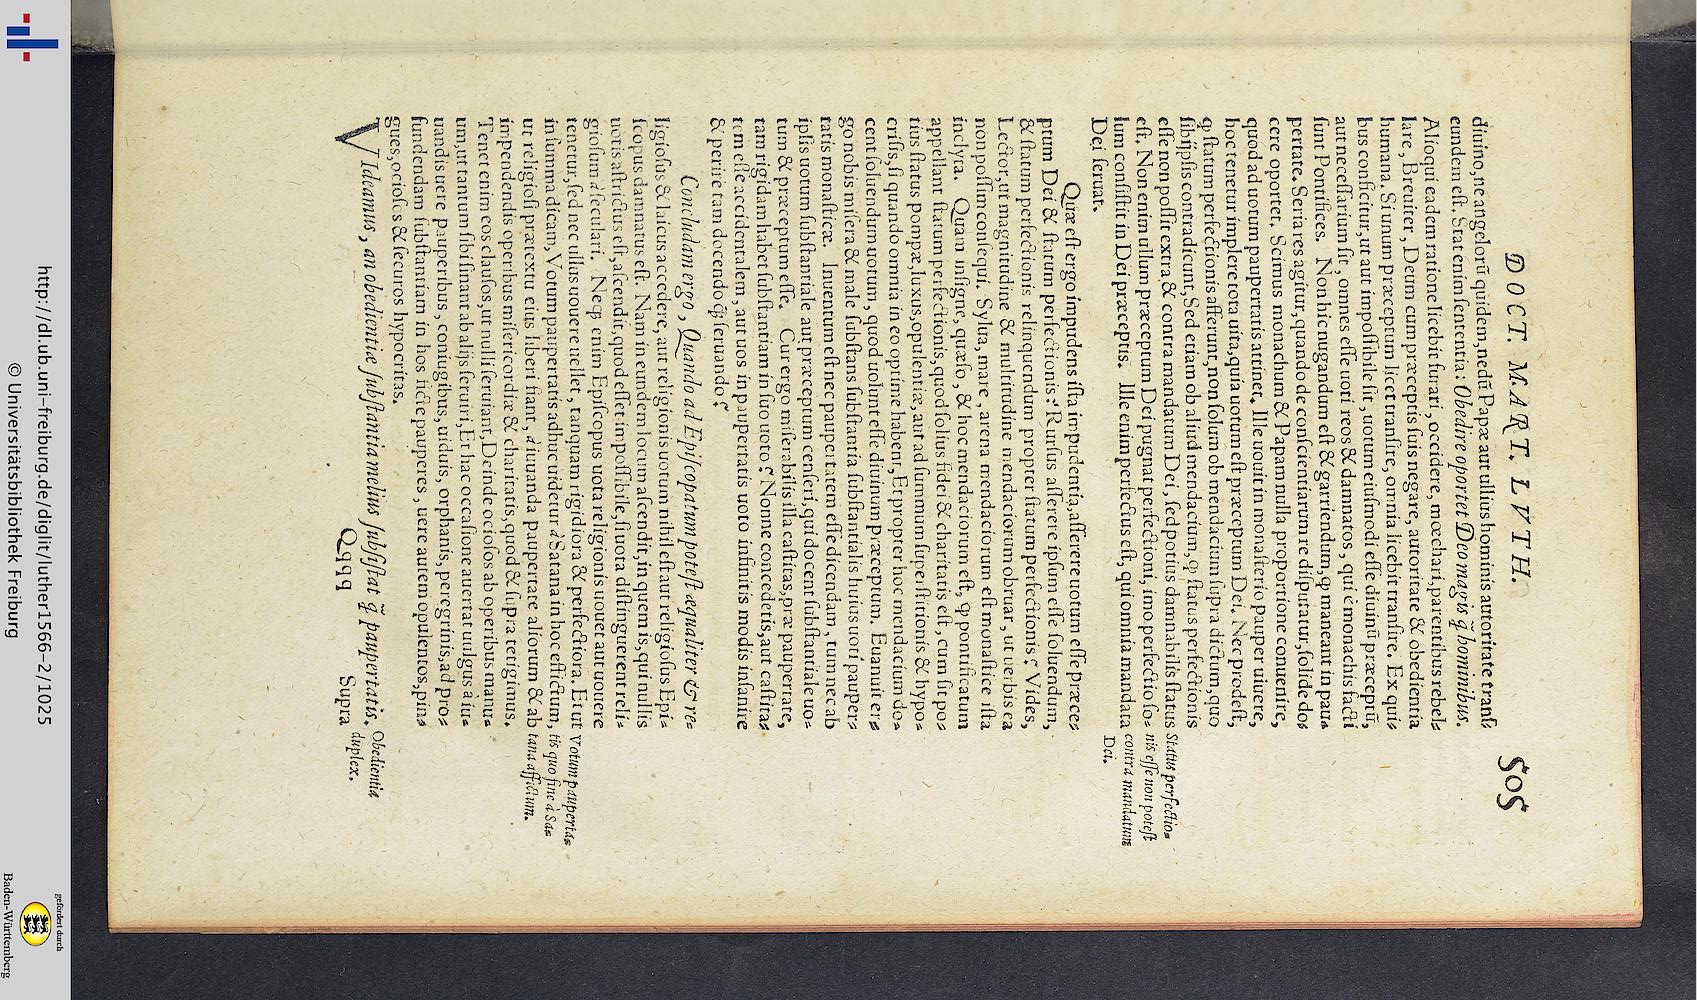 DOCT. MART. LVTH. 505
diuino, ne angelorũ quidem, nedũ Papæ aut ullius hominis autoritate transſ
eundem eſt. Stat enim ſententia: Obedire oportet Deo magis q̃ hominibus.
Alioqui eadem ratione licebit furari, occidere, mœchari, parentibus rebel⸗
lare, Breuiter, Deum cum præceptis ſuis negare, autoritate & obedientia
humana. Si unum præceptum licet tranſire, omnia licebit tranſire. Ex qui⸗
bus conficitur, ut aut impoſſibile ſit, uotum eiuſmodi eſſe diuinũ præceptũ,
aut neceſſarium ſit, omnes eſſe uoti reos & damnatos, qui è monachis facti
ſunt Pontifices. Non hic nugandum eſt & garriendum, ꝙ maneant in pau⸗
pertate. Seria res agitur, quando de conſcientiarum re diſputatur, ſolide do⸗
cere oportet. Scimus monachum & Papam nulla proportione conuenire,
quod ad uotum paupertatis attinet. Ille uouit in monaſterio pauper uiuere,
hoc tenetur implere tota uita, quia uotum eſt præceptum Dei. Nec prodeſt,
ꝙ ſtatum perfectionis aſſerunt, non ſolum ob mendacium ſupra dictum, quo
ſibijpſis contradicunt, Sed etiam ob aliud mendacium, ꝙ ſtatus perfectionis
eſſe non poſſit extra & contra mandatum Dei, ſed potius damnabilis ſtatus
eſt. Non enim ullum præceptum Dei pugnat perfectioni, imo perfectio ſo⸗
lum conſiſtit in Dei præceptis. Ille enim perfectus eſt, qui omnia mandata
Dei ſeruat.
Status perfectio⸗
nis eſſe non poteſt
contra mandatum
Dei.
Quæ eſt ergo impudens iſta impudentia, aſſerere uotum eſſe præce⸗
ptum Dei & ſtatum perfectionis? Rurſus aſſerere ipſum eſſe ſoluendum,
& ſtatum perfectionis relinquendum propter ſtatum perfectionis? Vides,
Lector, ut magnitudine & multitudine mendaciorum obruar, ut uerbis ea
non poſſum conſequi. Sylua, mare, arena mendaciorum eſt monaſtice iſta
inclyta. Quam inſigne, quæſo, & hoc mendaciorum eſt, ꝙ pontificatum
appellant ſtatum perfectionis, quod ſolius fidei & charitatis eſt, cum ſit po⸗
tius ſtatus pompæ, luxus, opulentiæ, aut ad ſummum ſuperſtitionis & hypo⸗
criſis, ſi quando omnia in eo optime habent, Et propter hoc mendacium do⸗
cent ſoluendum uotum, quod uolunt eſſe diuinum præceptum. Euanuit er⸗
go nobis miſera & male ſubſtans ſubſtantia ſubſtantialis huius uoti pauper⸗
tatis monaſticæ. Inuentum eſt nec paupertatem eſſe dicendam, tum nec ab
ipſis uotum ſubſtantiale aut præceptum cenſeri, qui docent ſubſtantiale uo⸗
tum & præceptum eſſe. Cur ergo miſerabilis illa caſtitas, præ paupertate,
tam rigidam habet ſubſtantiam in ſuo uoto? Nonne concedetis, aut caſtita⸗
tem eſſe accidentalem, aut uos in paupertatis uoto infinitis modis inſanire
& perire tam docendo q̃ ſeruando?
Concludam ergo, Quando ad Epiſcopatum poteſt æqualiter & re⸗
ligioſus & laicus accedere, aut religionis uotum nihil eſt aut religioſus Epi⸗
ſcopus damnatus eſt. Nam in eundem locum aſcendit, in quem is, qui nullis
uotis aſtrictus eſt, aſcendit, quod eſſet impoſſibile, ſi uota diſtinguerent reli⸗
gioſum à ſeculari. Neqꝫ enim Epiſcopus uota religionis uouet aut uouere
tenetur, ſed nec ullus uouere uellet, tanquam rigidiora & perfectiora. Et ut
in ſumma dicam, Votum paupertatis adhuc uidetur à Satana in hoc effictum,
ut religioſi prætextu eius liberi fiant, à iuuanda paupertate aliorum & ab
impendendis operibus miſericordiæ & charitatis, quod & ſupra tetigimus.
Tenet enim eos clauſos, ut nulli ſeruiant, Deinde ocioſos ab operibus manu⸗
um, ut tantum ſibi ſinant ab alijs ſeruiri, Et hac occaſione auertat uulgus a iu⸗
uandis uere pauperibus, coniugibus, uiduis, orphanis, peregrinis, ad pro⸗
fundendam ſubſtantiam in hos ficte pauperes, uere autem opulentos, pin⸗
gues, ocioſos & ſecuros hypocritas.
Votum pauperta⸗
tis quo fine à Sa⸗
tana affictum.
VIdeamus, an obedientiæ ſubſtantia melius ſubſiſtat q̃ paupertatis.
Obedientia
duplex.
Qqqq Supra
http://dl.ub.uni-freiburg.de/diglit/luther1566-2/1025
© Universitätsbibliothek Freiburg
gefördert durch
Baden-Württemberg